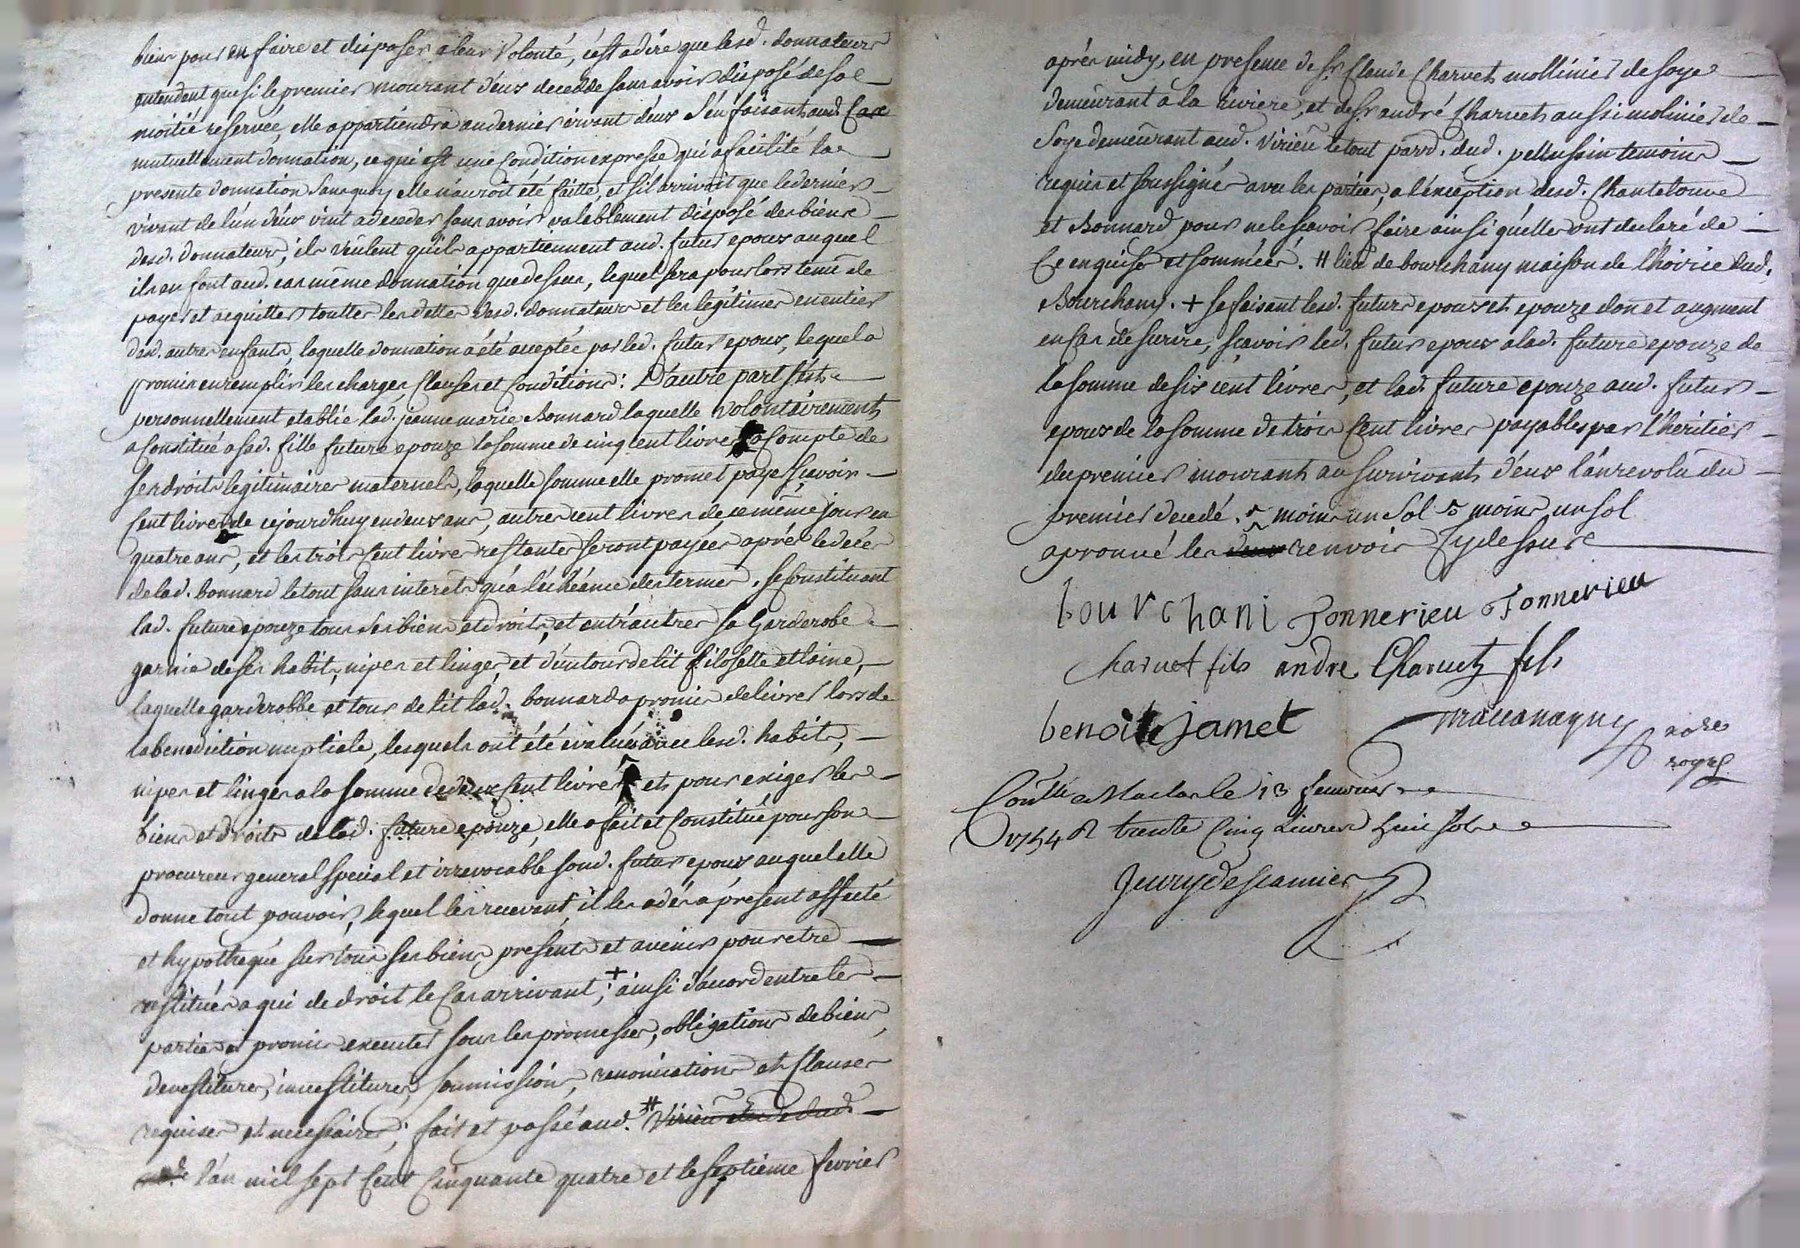 biens pour en faire et disposer a leur volonté, c'est a dire que lesd. donnateurs
entendent que si le premier mourant d'eux decedde sans avoir disposé de sa
moitié reservée, elle appartiendra au dernier vivant d'eux s'en faisant aud. cas
mutuellement donnation, ce qui est une condition expresse qui a facilité la
presente donnation sans quoy elle n'auroit été faitte, et s'il arrivoit que le dernier
vivant de l'un d'eux vint a deceder sans avoir valeblement disposé des biens
desd. donnateurs, ils veulent qu'ils appartiennent aud. futur epoux auquel
ils en font aud. cas même donnation que dessus, lequel sera pour lors tenu de
payer et aquitter touttes les dettes desd. donnateurs et les legitimes en entier
desd. autres enfants, laquelle donnation a été acceptée par led. futur epoux, lequel a
promis en remplir les charges, clauses et conditions: D'autre part s'est
personnellement etablie lad. jeanne marie Bonnard laquelle volontairement
a constitué a sad. fille future epouze la somme de cinq cent livres a compte de
ses droits legitimaires maternels, laquelle somme elle promet paye scavoir
cent livres de cejourdhuy en deux ans, autres cent livres de ce même jour en
quatre ans, et les trois cent livres restantes seront payées aprés le decés
de lad. bonnard le tout sans interets qu'a l'échéance des termes, se constituant
lad. future epouze tous ses biens et droits, et entr'autres sa Garderobe
garnie de ses habits, nipes et linges et d'un tour de lit filosette et laine,
laquelle garderobbe et tour de lit lad. bonnard a promis delivrer lors de
la benediction nuptiale, lesquels ont été evalués avec lesd. habits,
nipes et linges a la somme de deux cent livres et pour exiger les
biens et droits de lad. future epouze, elle a fait et constitué pour son
procureur general special et irrevocable soud. futur epoux auquel elle
donne tout pouvoir, lequel les recevant, il les a dés a présent affecté
et hypothequé sur tous ses biens presents et avenirs pour etre
restitués a qui de droit le cas arrivant, + ainsi d'acord entre les
parties et promis executer sous les promesses, obligations de biens,
devestitures, investitures, soumissions, renonciations et clauses
requises et necessaires; fait et passé aud. # Virieu
l'an mil sept cent cinquante quatre et le septième fevrier
aprés midy, en presence de sr. Claude Charvet mollinier de soye
demeurant a la riviere, et de sr andré Charvet aussi molinier de
soye demeurant aud. Virieu le tout parr. dud. pellussin temoins
requis et soussignés avec les parties, a l'exception desd. Chantelouve
et Bonnard pour ne le scavoir faire ainsi qu'elles ont declaré de
ce enquises et sommées. # lieu de bourchany maison de l'hoirie dud.
Bourchany. + se faisant lesd. futurs epoux et epouze don et augment
en cas de survie, scavoir led. futur epoux a lad. future epouze de
la somme de six cent livres, et lad. future epouze aud. futur
epoux de la somme de trois cent livres payables par l'héritier
du premier mourant au survivant d'eux l'an revolu du
premier decedé. moins un sol moins un sol
aprouvé les deux renvois cy dessus
bourchani Jonnerieu Jonnerieu
Charvet fils andre Charvet fils
benoit jamet
nore
royal
Coutllé a Maclas le 13 feuvrier
1754 R trente Cinq Livres huit sols